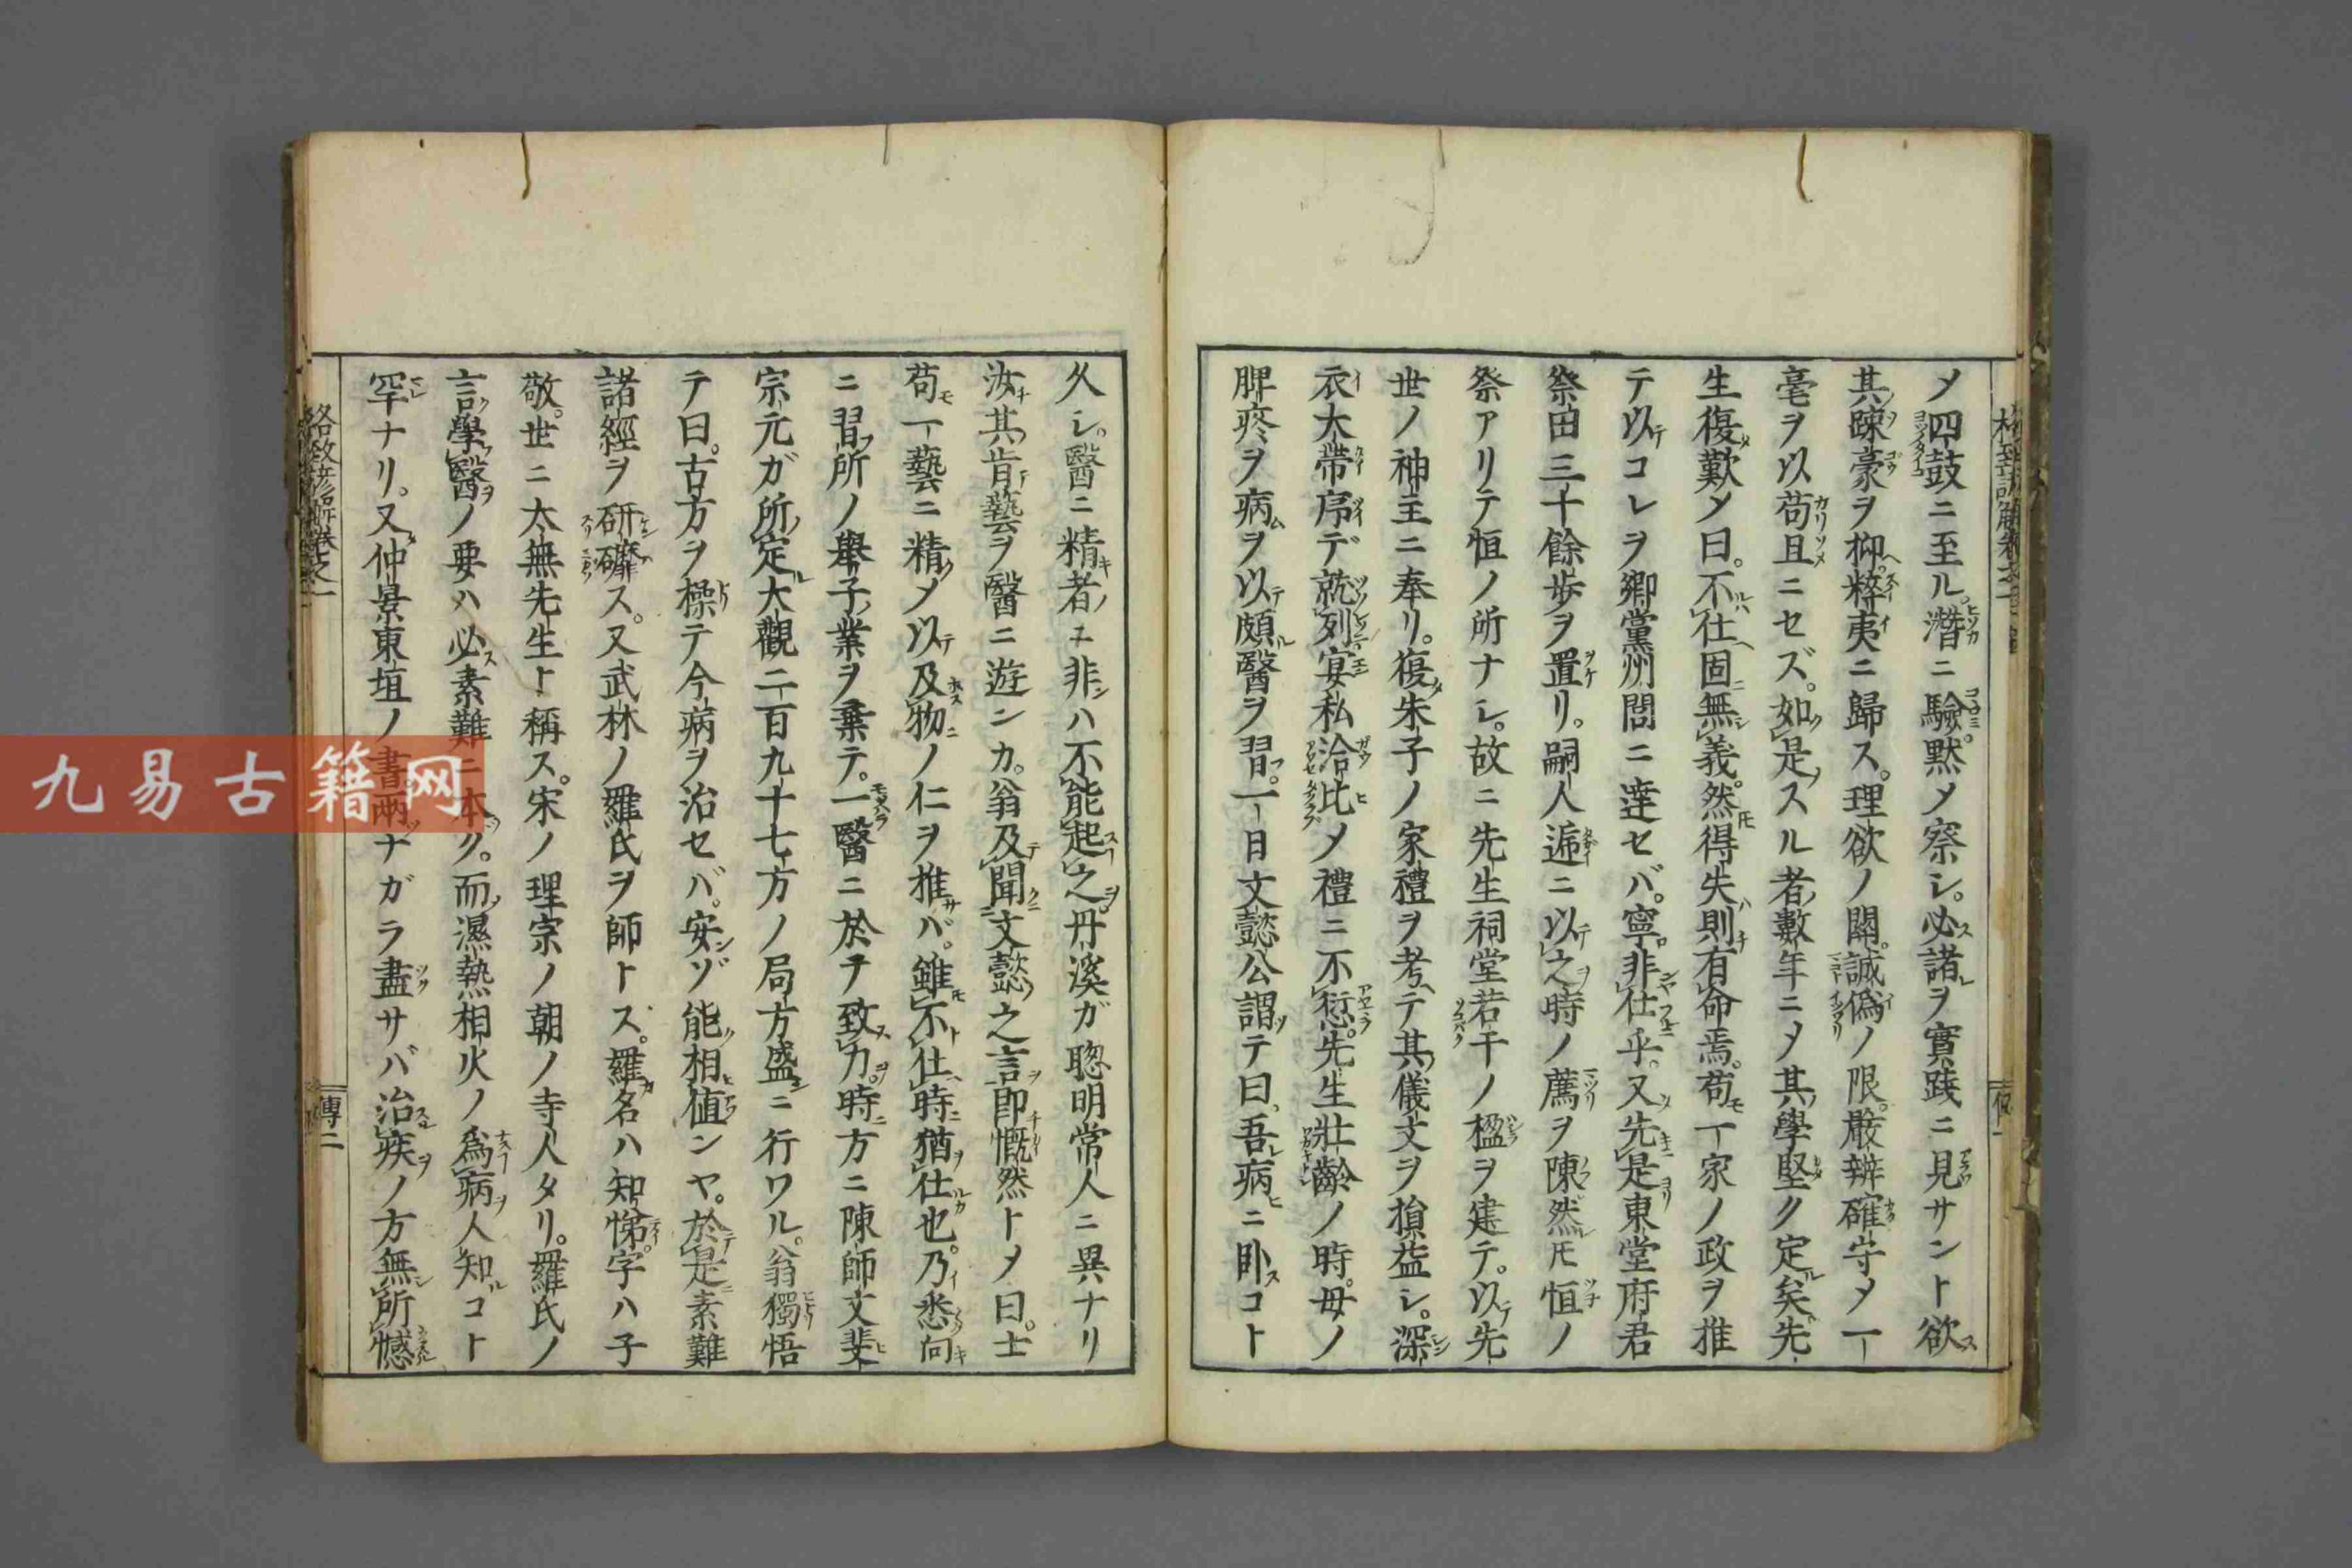 メ四鼓ニ至ル。潜ニ驗。黙メ察シ。必諸ヲ實踐ニ見サント欲
其踈豪ヲ抑。粹夷ニ歸ス。理欲ノ關。誠僞ノ限。嚴辨確守メ一
毫ヲ以苟且ニセズ。如是スル者數年ニメ其學堅ク定矣先
生復歎メ曰。不仕固無義。然得失則有命焉。苟一家ノ政ヲ推
テ以コレヲ郷黨州閭ニ達セバ。寧非仕乎。又先是東堂府君
祭田三十餘歩ヲ置リ。嗣人遞ニ以之時ノ薦ヲ陳然𪜈恒ノ
祭アリテ恒ノ所ナシ。故ニ先生祠堂若干ノ楹ヲ建テ。以先
世ノ神主ニ奉リ。復朱子ノ家禮ヲ考テ其儀文ヲ損益シ。深
衣大帶序デ就列宴私洽比メ禮ニ不愆。先生壯齡ノ時。母ノ
脾疼ヲ病ヲ以頗醫ヲ習。一日文懿公謂テ曰。吾病ニ臥コト
久シ。醫ニ精者ニ非ハ不能起之。丹溪ガ聰明常人ニ異ナリ
汝其肯藝ヲ醫ニ遊ンカ。翁及聞文懿之言即慨然トメ曰。士
苟一藝ニ精メ以及物ノ仁ヲ推バ。雖不仕時猶仕也。乃悉向
ニ習所ノ舉子業ヲ棄テ。一醫ニ於テ致力。時ニ方ニ陳師文裴
宗元ガ所定大觀二百九十七方ノ局方盛ニ行ワル。翁獨悟
テ曰。古方ヲ操テ今病ヲ治セバ。安ゾ能相値ンヤ。於是素難
諸經ヲ研磨ス。又武林ノ羅氏ヲ師トス。羅名ハ知悌。字ハ子
敬。世ニ太無先生ト稱ス。宋ノ理宗ノ朝ノ寺人タリ。羅氏ノ
言學醫ノ要ハ必素難ニ本ク。而濕熱相火ノ爲病人知コト
罕ナリ。又仲景東垣ノ書。兩ナガラ盡サバ治疾ノ方無所憾
格致餘諺解卷之一
傳二
九易古籍网